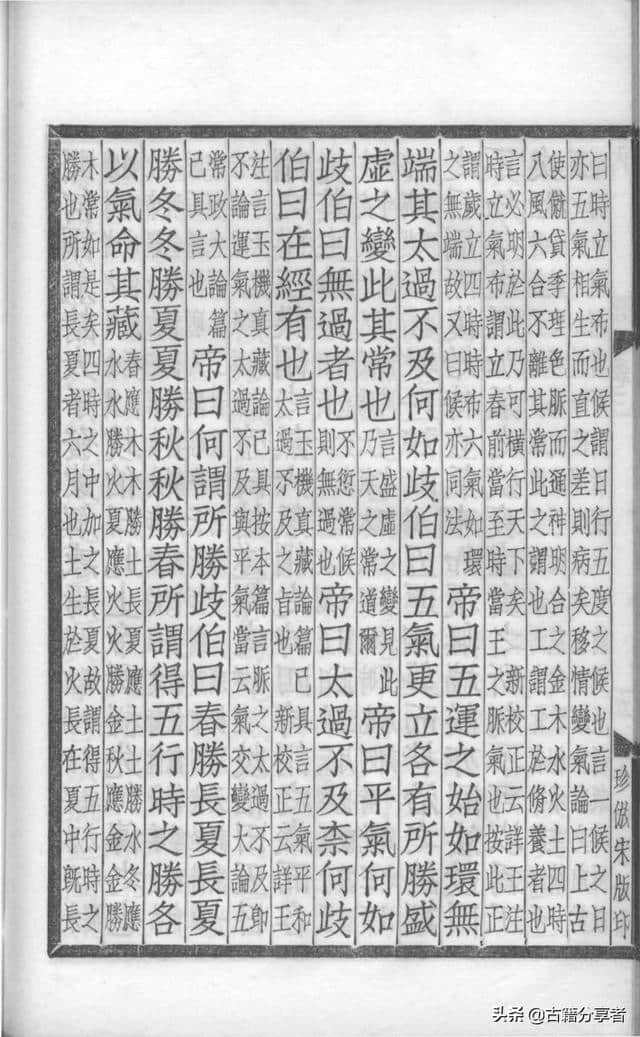 曰時立氣布也候謂日行五度之候也言一候之日
亦五氣相生而直之差則病矣移情變氣論曰上古
使僦貸季理色脈而通神明合之金木水火土四時
八風六合不離其常此之謂也工謂工於脩養者也
言必明於此乃可橫行天下矣新校正云詳王注
時立氣布謂立春前當至時當王之脈氣也按此正
謂歲立四時時布六氣如環
之無端故又曰候亦同法
帝曰五運之始如環無
端其太過不及何如歧伯曰五氣更立各有所勝盛
虛之變此其常也
言盛虛之變見此
乃天之常道爾
帝曰平氣何如
歧伯曰無過者也
不愆常候
則無過也
帝曰太過不及柰何歧
伯曰在經有也
言玉機真藏論篇已具言五氣平和
太過不及之旨也新校正云詳王
注言玉機真藏論已具按本篇言脈之太過不及即
不論運氣之太過不及與平氣當云氣交變大論五
常政大論篇
已具言也
帝曰何謂所勝歧伯曰春勝長夏長夏
勝冬冬勝夏夏勝秋秋勝春所謂得五行時之勝各
以氣命其藏
春應木木勝土長夏應土土勝水冬應
水水勝火夏應火火勝金秋應金金勝
木常如是矣四時之中加之長夏故謂得五行時之
勝也所謂長夏者六月也土生於火長在夏中既長
珍倣宋版印
头条 @古籍分享者